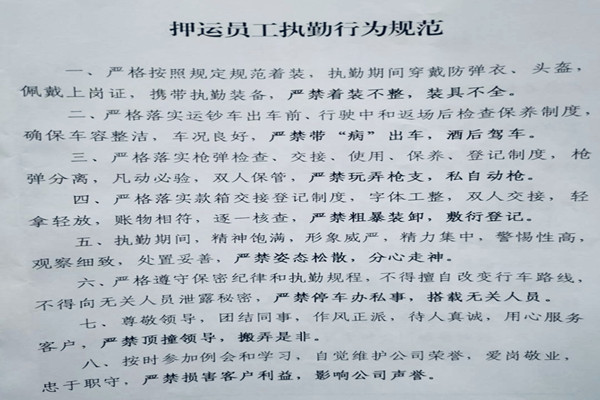 押运员工执勤行为规范
一、严格按照规定规范着装，执勤期间穿戴防弹衣、头盔，
佩戴上岗证，携带执勤装备，严禁着装不整，装具不全。
二、严格落实运钞车出车前、行驶中和返场后检查保养制度，
确保车容整洁，车况良好，严禁带“病”出车，酒后驾车。
三、严格落实枪弹检查、交接、使用、保养、登记制度，枪
弹分离，凡动必验，双人保管，严禁玩弄枪支，私自动枪。
四、严格落实款箱交接登记制度，字体工整，双人交接，轻
拿轻放，账物相符，逐一核查，严禁粗暴装卸，敷衍登记。
五、执勤期间，精神饱满，形象威严，精力集中，警惕性高，
观察细致，处置妥善，严禁姿态松散，分心走神。
六、严格遵守保密纪律和执勤规程，不得擅自改变行车路线，
不得向无关人员泄露秘密，严禁停车办私事，搭载无关人员。
七、尊敬领导，团结同事，作风正派，待人真诚，用心服务
客户，严禁顶撞领导，搬弄是非。
八、按时参加例会和学习，自觉维护公司荣誉，爱岗敬业，
忠于职守，严禁损害客户利益，影响公司声誉。